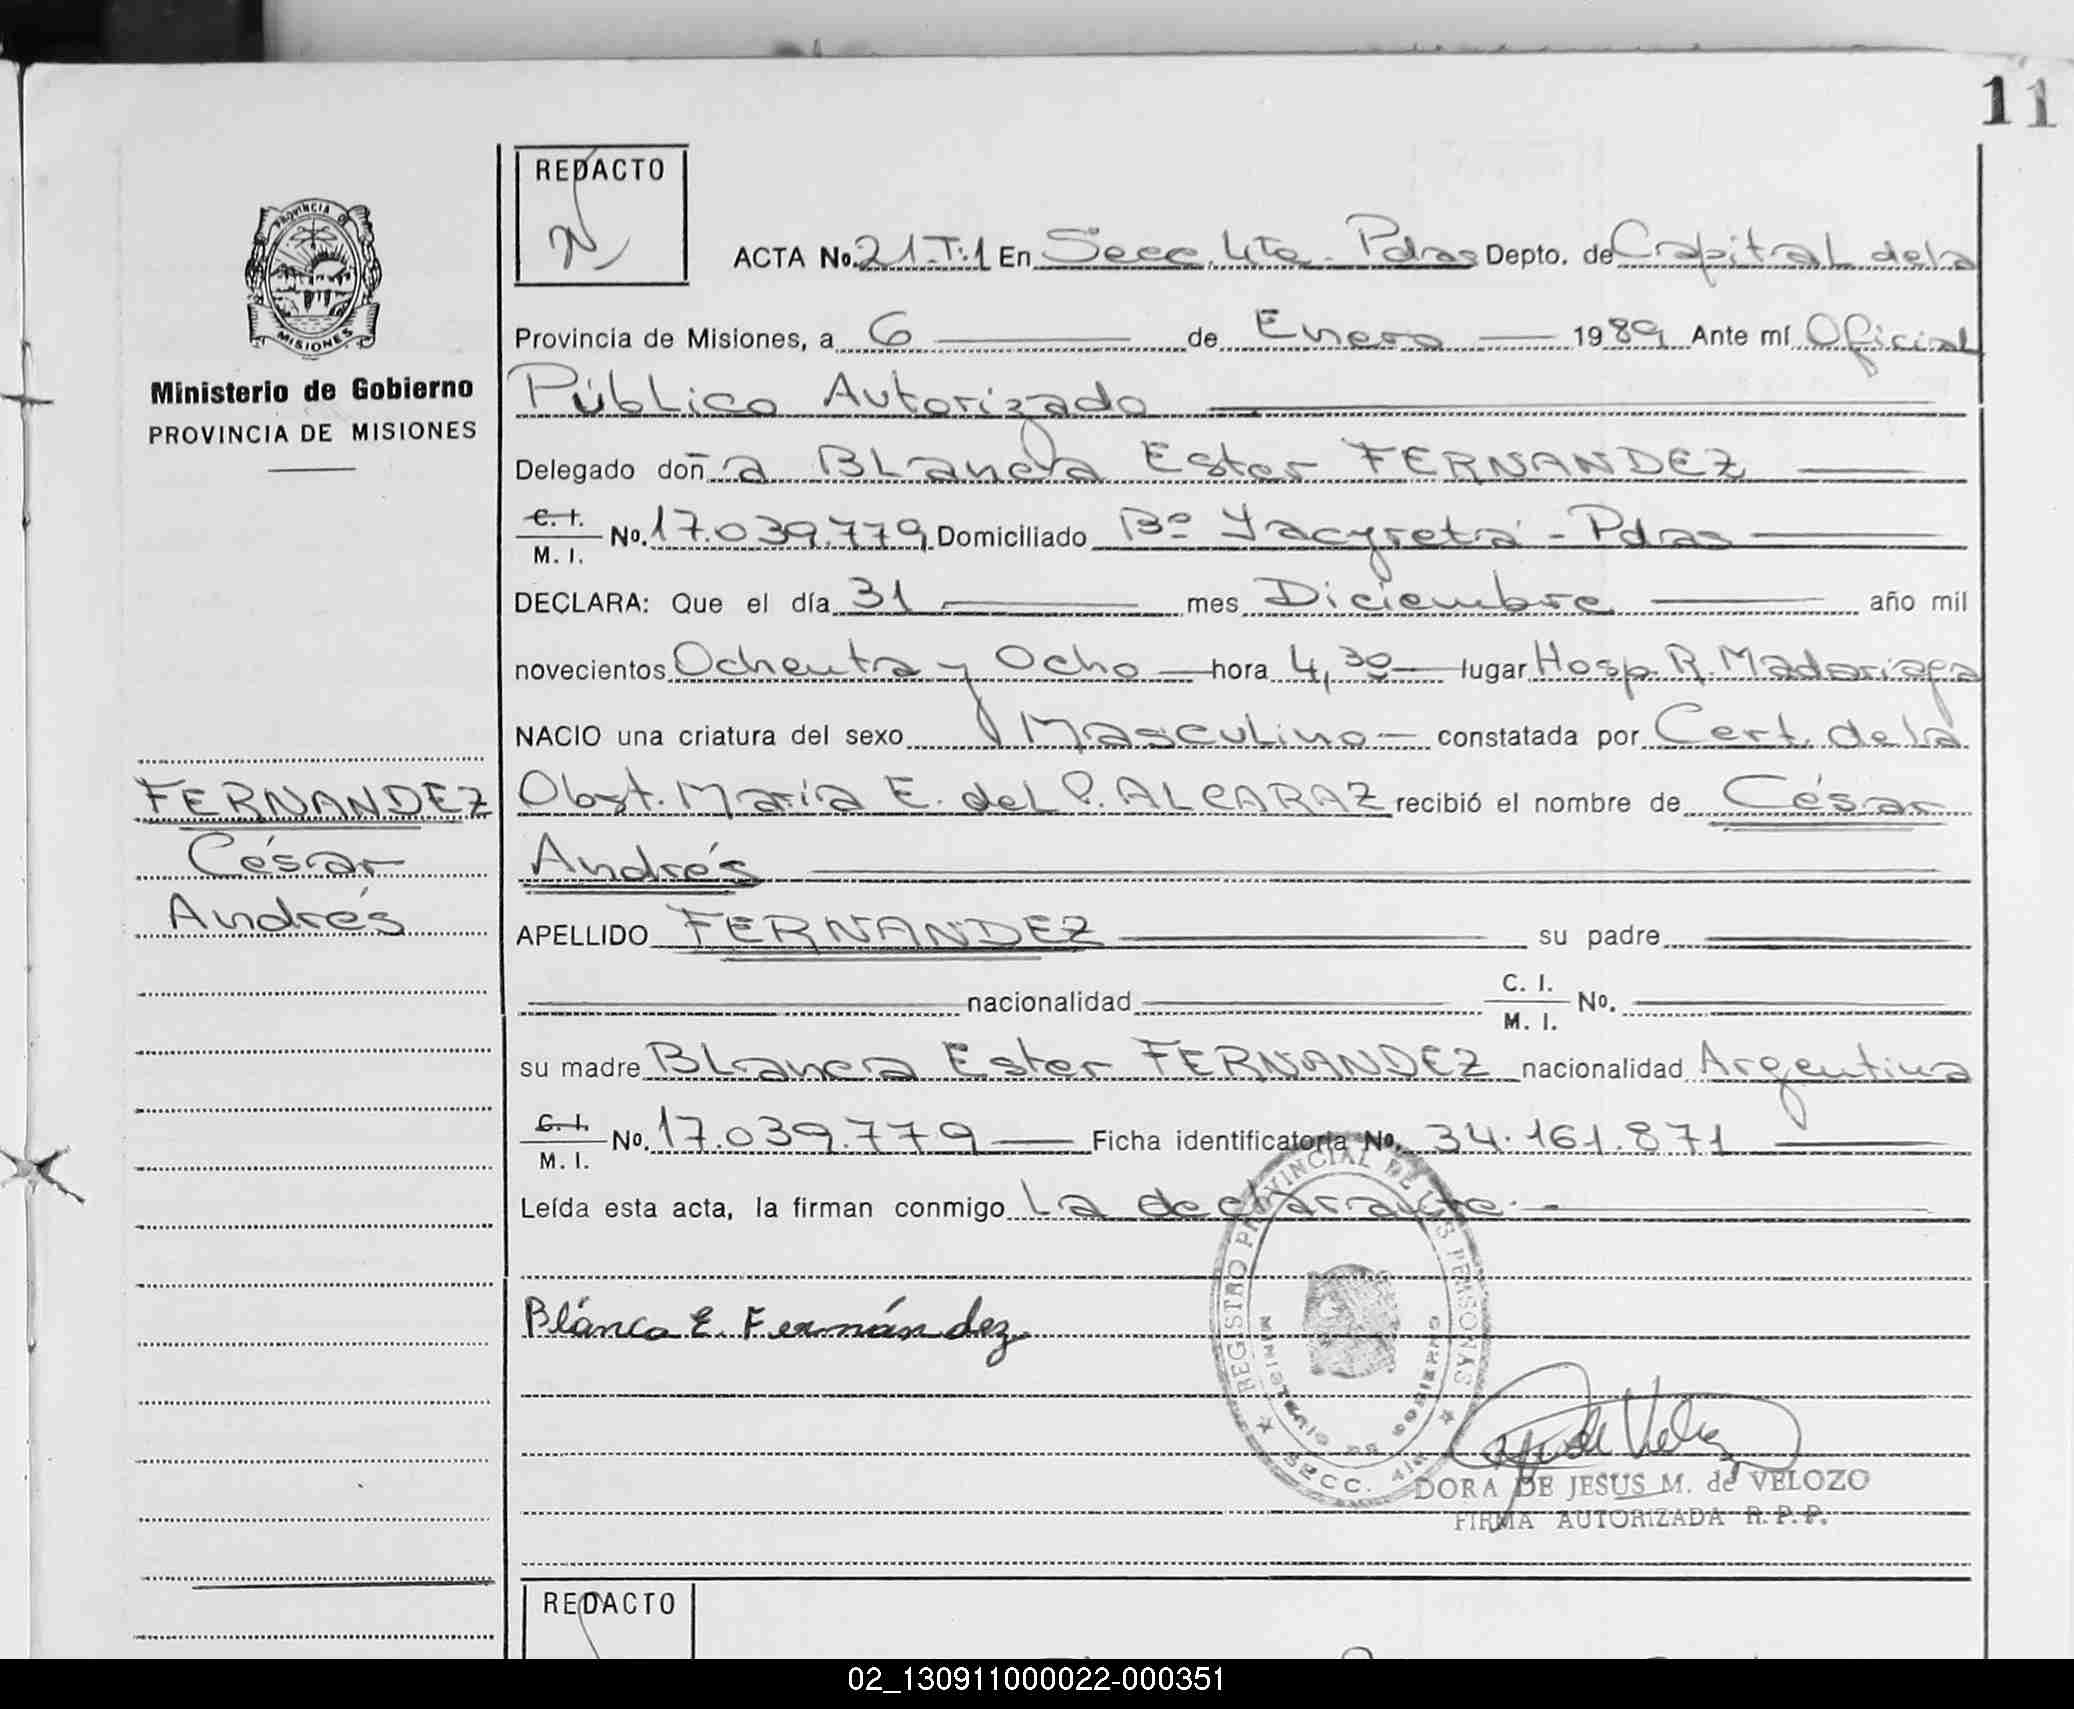 11
REDACTO
ACTA No. 21.T:1 En Secc. 4ta. Pdas Depto. de Capital de la
Provincia de Misiones, a 6 de Enero 1989 Ante mí Oficial
Público Autorizado
Delegado doña Blanca Ester FERNANDEZ
C. I.
M. I. No. 17.039.779 Domiciliado Bº Yacyretá - Pdas
DECLARA: Que el día 31 mes Diciembre año mil
novecientos Ochenta y Ocho hora 4,30 lugar Hosp. R. Madariaga
NACIO una criatura del sexo Masculino constatada por Cert. de la
Obst. María E. del P. ALCARAZ recibió el nombre de César
Andrés
APELLIDO FERNANDEZ su padre
nacionalidad C. I.
M. I. No.
su madre Blanca Ester FERNANDEZ nacionalidad Argentina
C. I.
M. I. No. 17.039.779 Ficha identificatoria No. 34.161.871
Leída esta acta, la firman conmigo la declarante.-
Blanca E. Fernández
PROVINCIA DE
MISIONES
Ministerio de Gobierno
PROVINCIA DE MISIONES
FERNANDEZ
César
Andrés
REGISTRO PROVINCIAL DE LAS PERSONAS
MINISTERIO DE GOBIERNO
SECC. 4ta
DORA DE JESUS M. de VELOZO
FIRMA AUTORIZADA R. P. P.
REDACTO
02_130911000022-000351